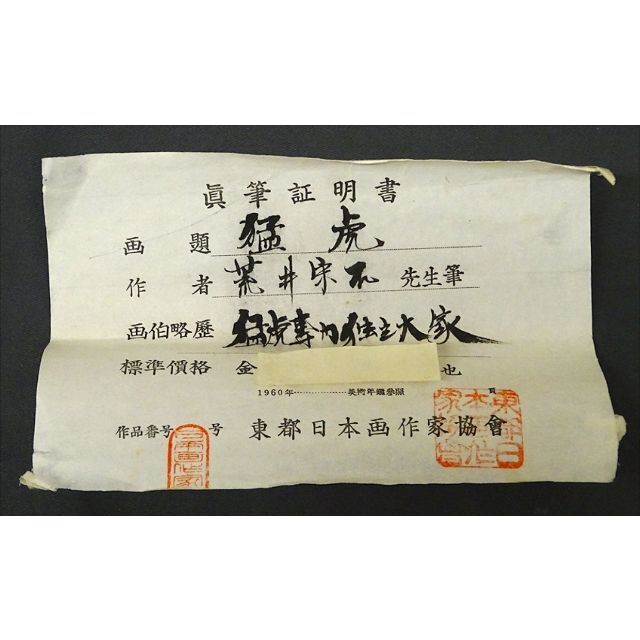 眞筆証明書
画題 猛虎
作者 荒井宋石 先生筆
画伯略歴 猛虎専門独立大家
標準價格 金 也
1960年………………美術年鑑参照 頁
作品番号 号 東都日本画作家協會